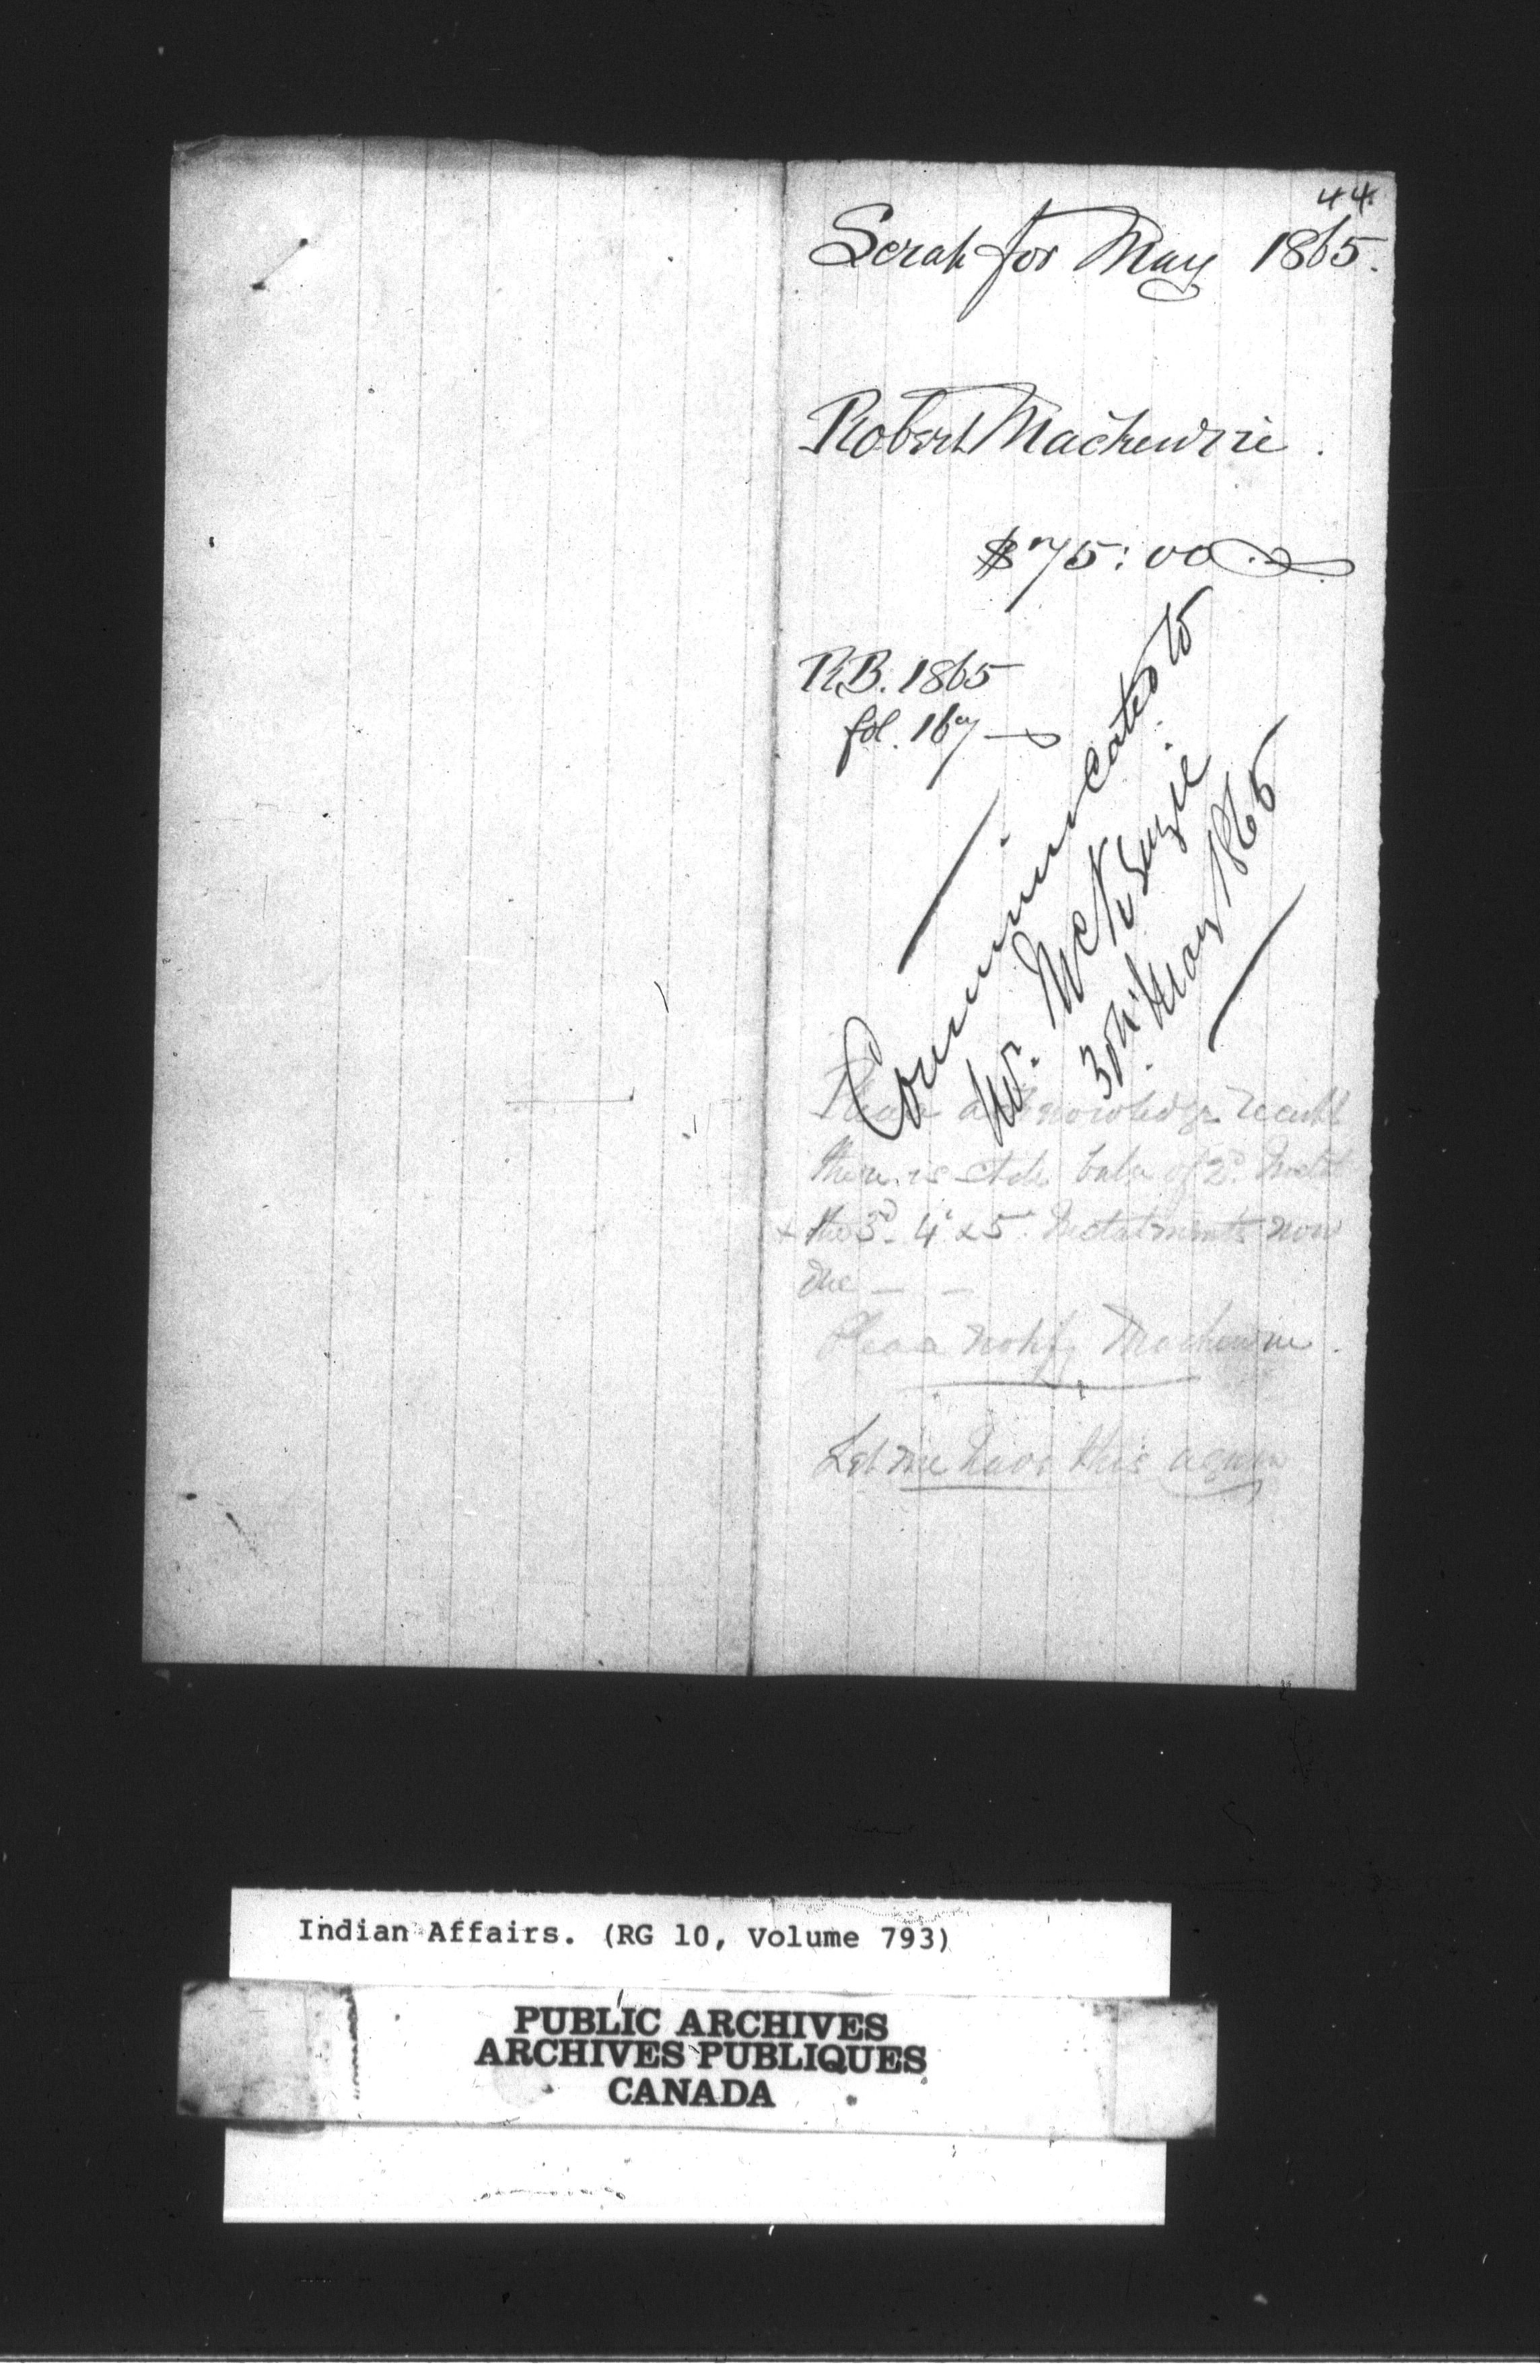 44.
Serah for May 1865.
Robert Mackenzie.
$75:00
R.B. 1865
fol. 167
Communicated to
Mr. McKenzie
30th May 1865
Please acknowledge receipt
there is still balce of 2d. Instalt
& the 3d. 4th & 5th. Instalments now
due — —
Please notify Mackenzie.
Let me have this again
Indian Affairs. (RG 10, Volume 793)
PUBLIC ARCHIVES
ARCHIVES PUBLIQUES
CANADA